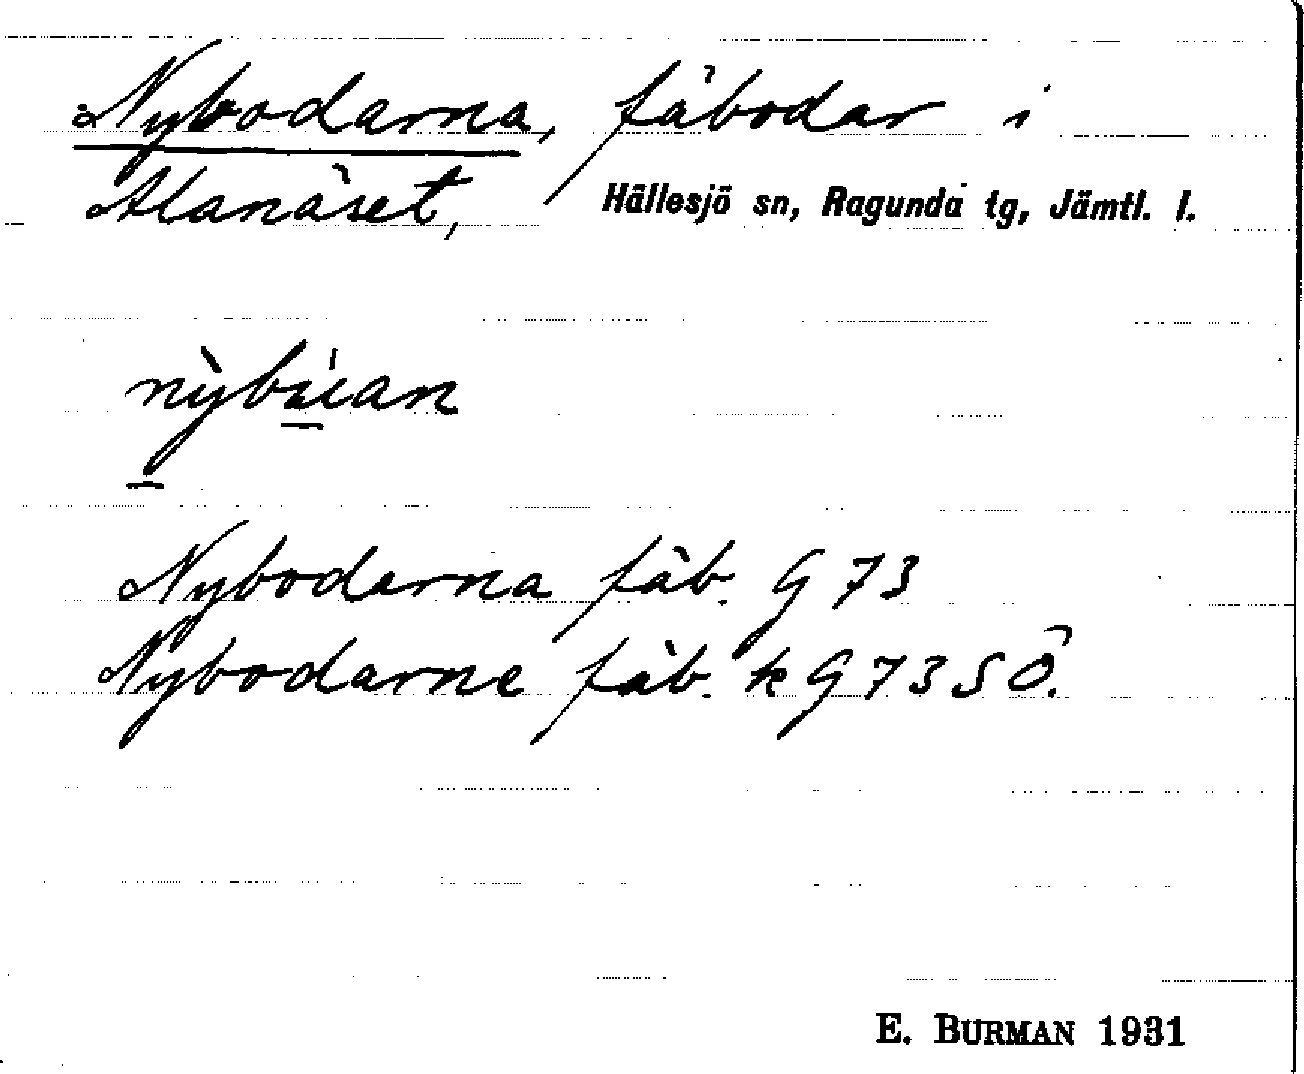 Nybodarna, fäbodar i
Alanäset, Hällesjö sn, Ragunda tg, Jämtl. l.
Nybodarna fäb. G 73
Nybodarne fäb. k G 73 SÖ.
E. BURMAN 1931